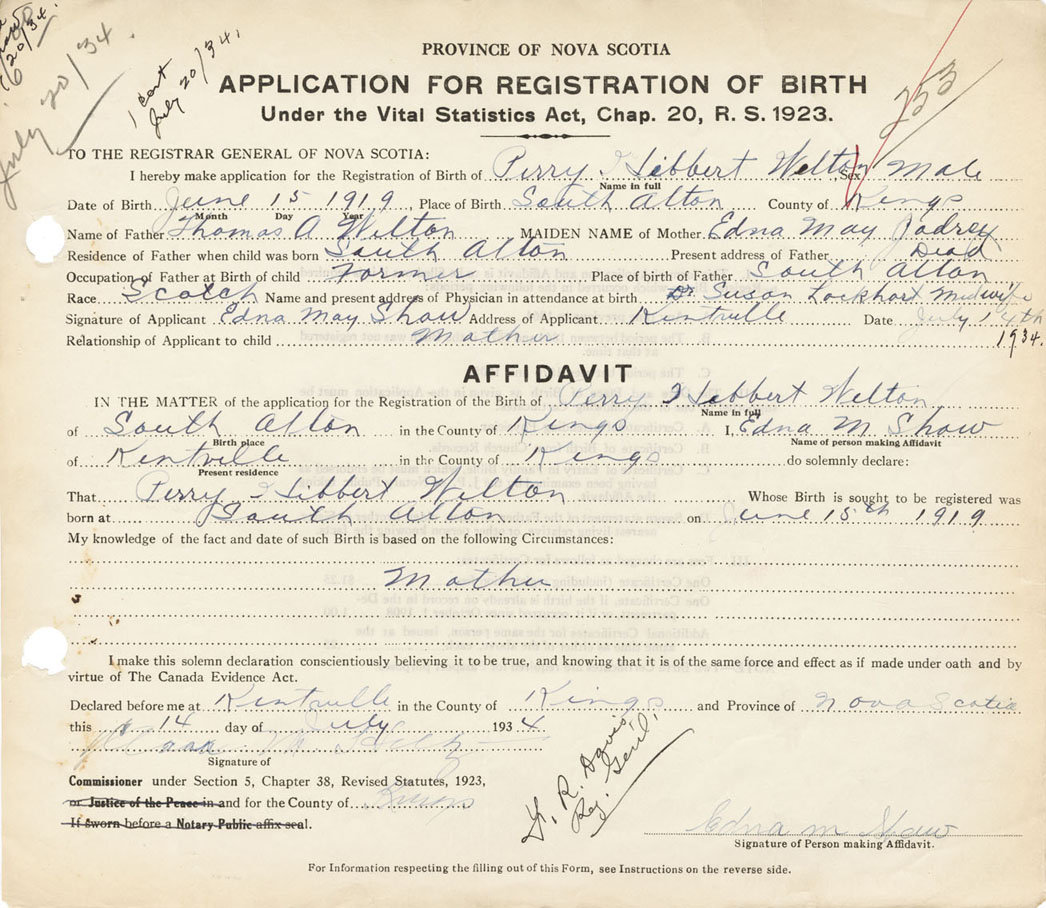 July 20/34.
1 cert
July 20/34.
253
PROVINCE OF NOVA SCOTIA
APPLICATION FOR REGISTRATION OF BIRTH
Under the Vital Statistics Act, Chap. 20, R. S. 1923.
TO THE REGISTRAR GENERAL OF NOVA SCOTIA:
I hereby make application for the Registration of Birth of Perry Hibbert Welton Sex Male
Name in full
Date of Birth June 15 1919, Place of Birth South Alton County of Kings
Month Day Year
Name of Father Thomas A Welton MAIDEN NAME of Mother Edna May Jodrey
Residence of Father when child was born South Alton Present address of Father Dead
Occupation of Father at Birth of child Farmer Place of birth of Father South Alton
Race Scotch Name and present address of Physician in attendance at birth Dr Susan Lockhart Midwife
Signature of Applicant Edna May Shaw Address of Applicant Kentville Date July 14th
Relationship of Applicant to child Mother 1934.
AFFIDAVIT
IN THE MATTER of the application for the Registration of the Birth of Perry Hibbert Welton
Name in full
of South Alton in the County of Kings I, Edna M Shaw
Birth place Name of person making Affidavit
of Kentville in the County of Kings do solemnly declare:
Present residence
That Perry Hibbert Welton Whose Birth is sought to be registered was
born at South Alton on June 15th 1919
My knowledge of the fact and date of such Birth is based on the following Circumstances:
Mother
I make this solemn declaration conscientiously believing it to be true, and knowing that it is of the same force and effect as if made under oath and by
virtue of The Canada Evidence Act.
Declared before me at Kentville in the County of Kings and Province of Nova Scotia
this 14 day of July 1934
Signature of
Commissioner under Section 5, Chapter 38, Revised Statutes, 1923,
or Justice of the Peace in and for the County of Kings
If sworn before a Notary Public affix seal.
Davis,
Reg. Gen'l.
Edna M Shaw
Signature of Person making Affidavit.
For Information respecting the filling out of this Form, see Instructions on the reverse side.